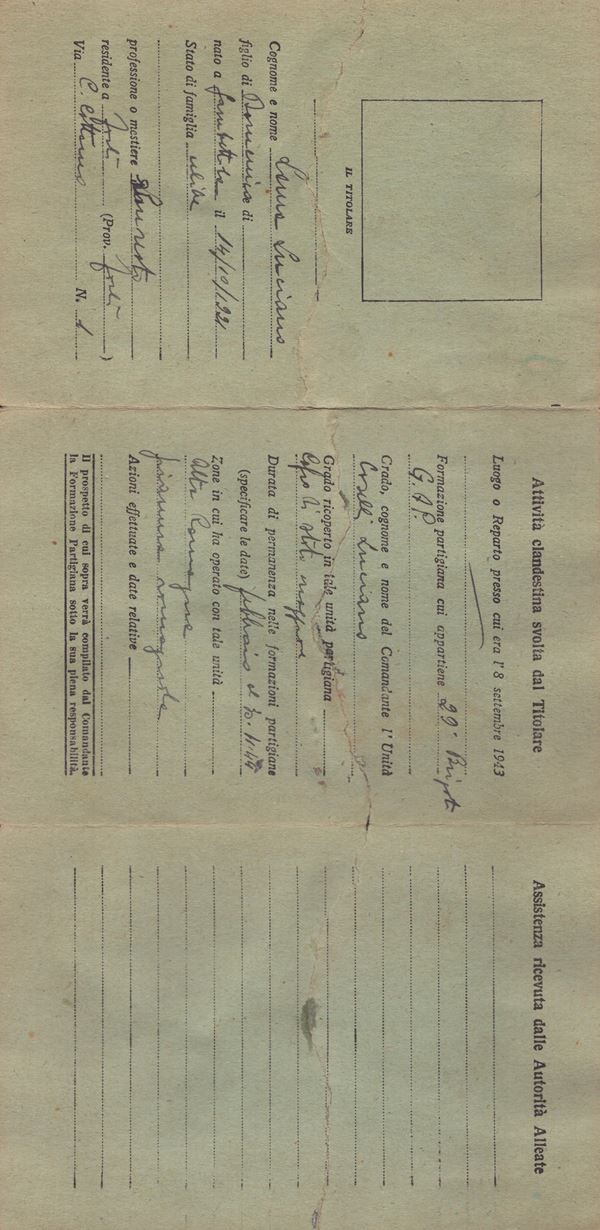 IL TITOLARE
Cognome e nome Lama Luciano
figlio di Domenico di
nato a Gambettola il 14/10/1921
Stato di famiglia celibe
professione o mestiere
residente a Forlì (Prov. Forlì)
Via N. 1
Attività clandestina svolta dal Titolare
Luogo o Reparto presso cui era l'8 settembre 1943
Formazione partigiana cui appartiene 29ª Brigata
G.A.P.
Grado, cognome e nome del Comandante l'Unità
Luciano
Grado ricoperto in tale unità partigiana
Capo di stato maggiore
Durata di permanenza nelle formazioni partigiane
(specificare le date) febbraio al
Zone in cui ha operato con tale unità
Alta Romagna
pianura romagnola
Azioni effettuate e date relative
Il prospetto di cui sopra verrà compilato dal Comandante
la Formazione Partigiana sotto la sua piena responsabilità.
Assistenza ricevuta dalle Autorità Alleate